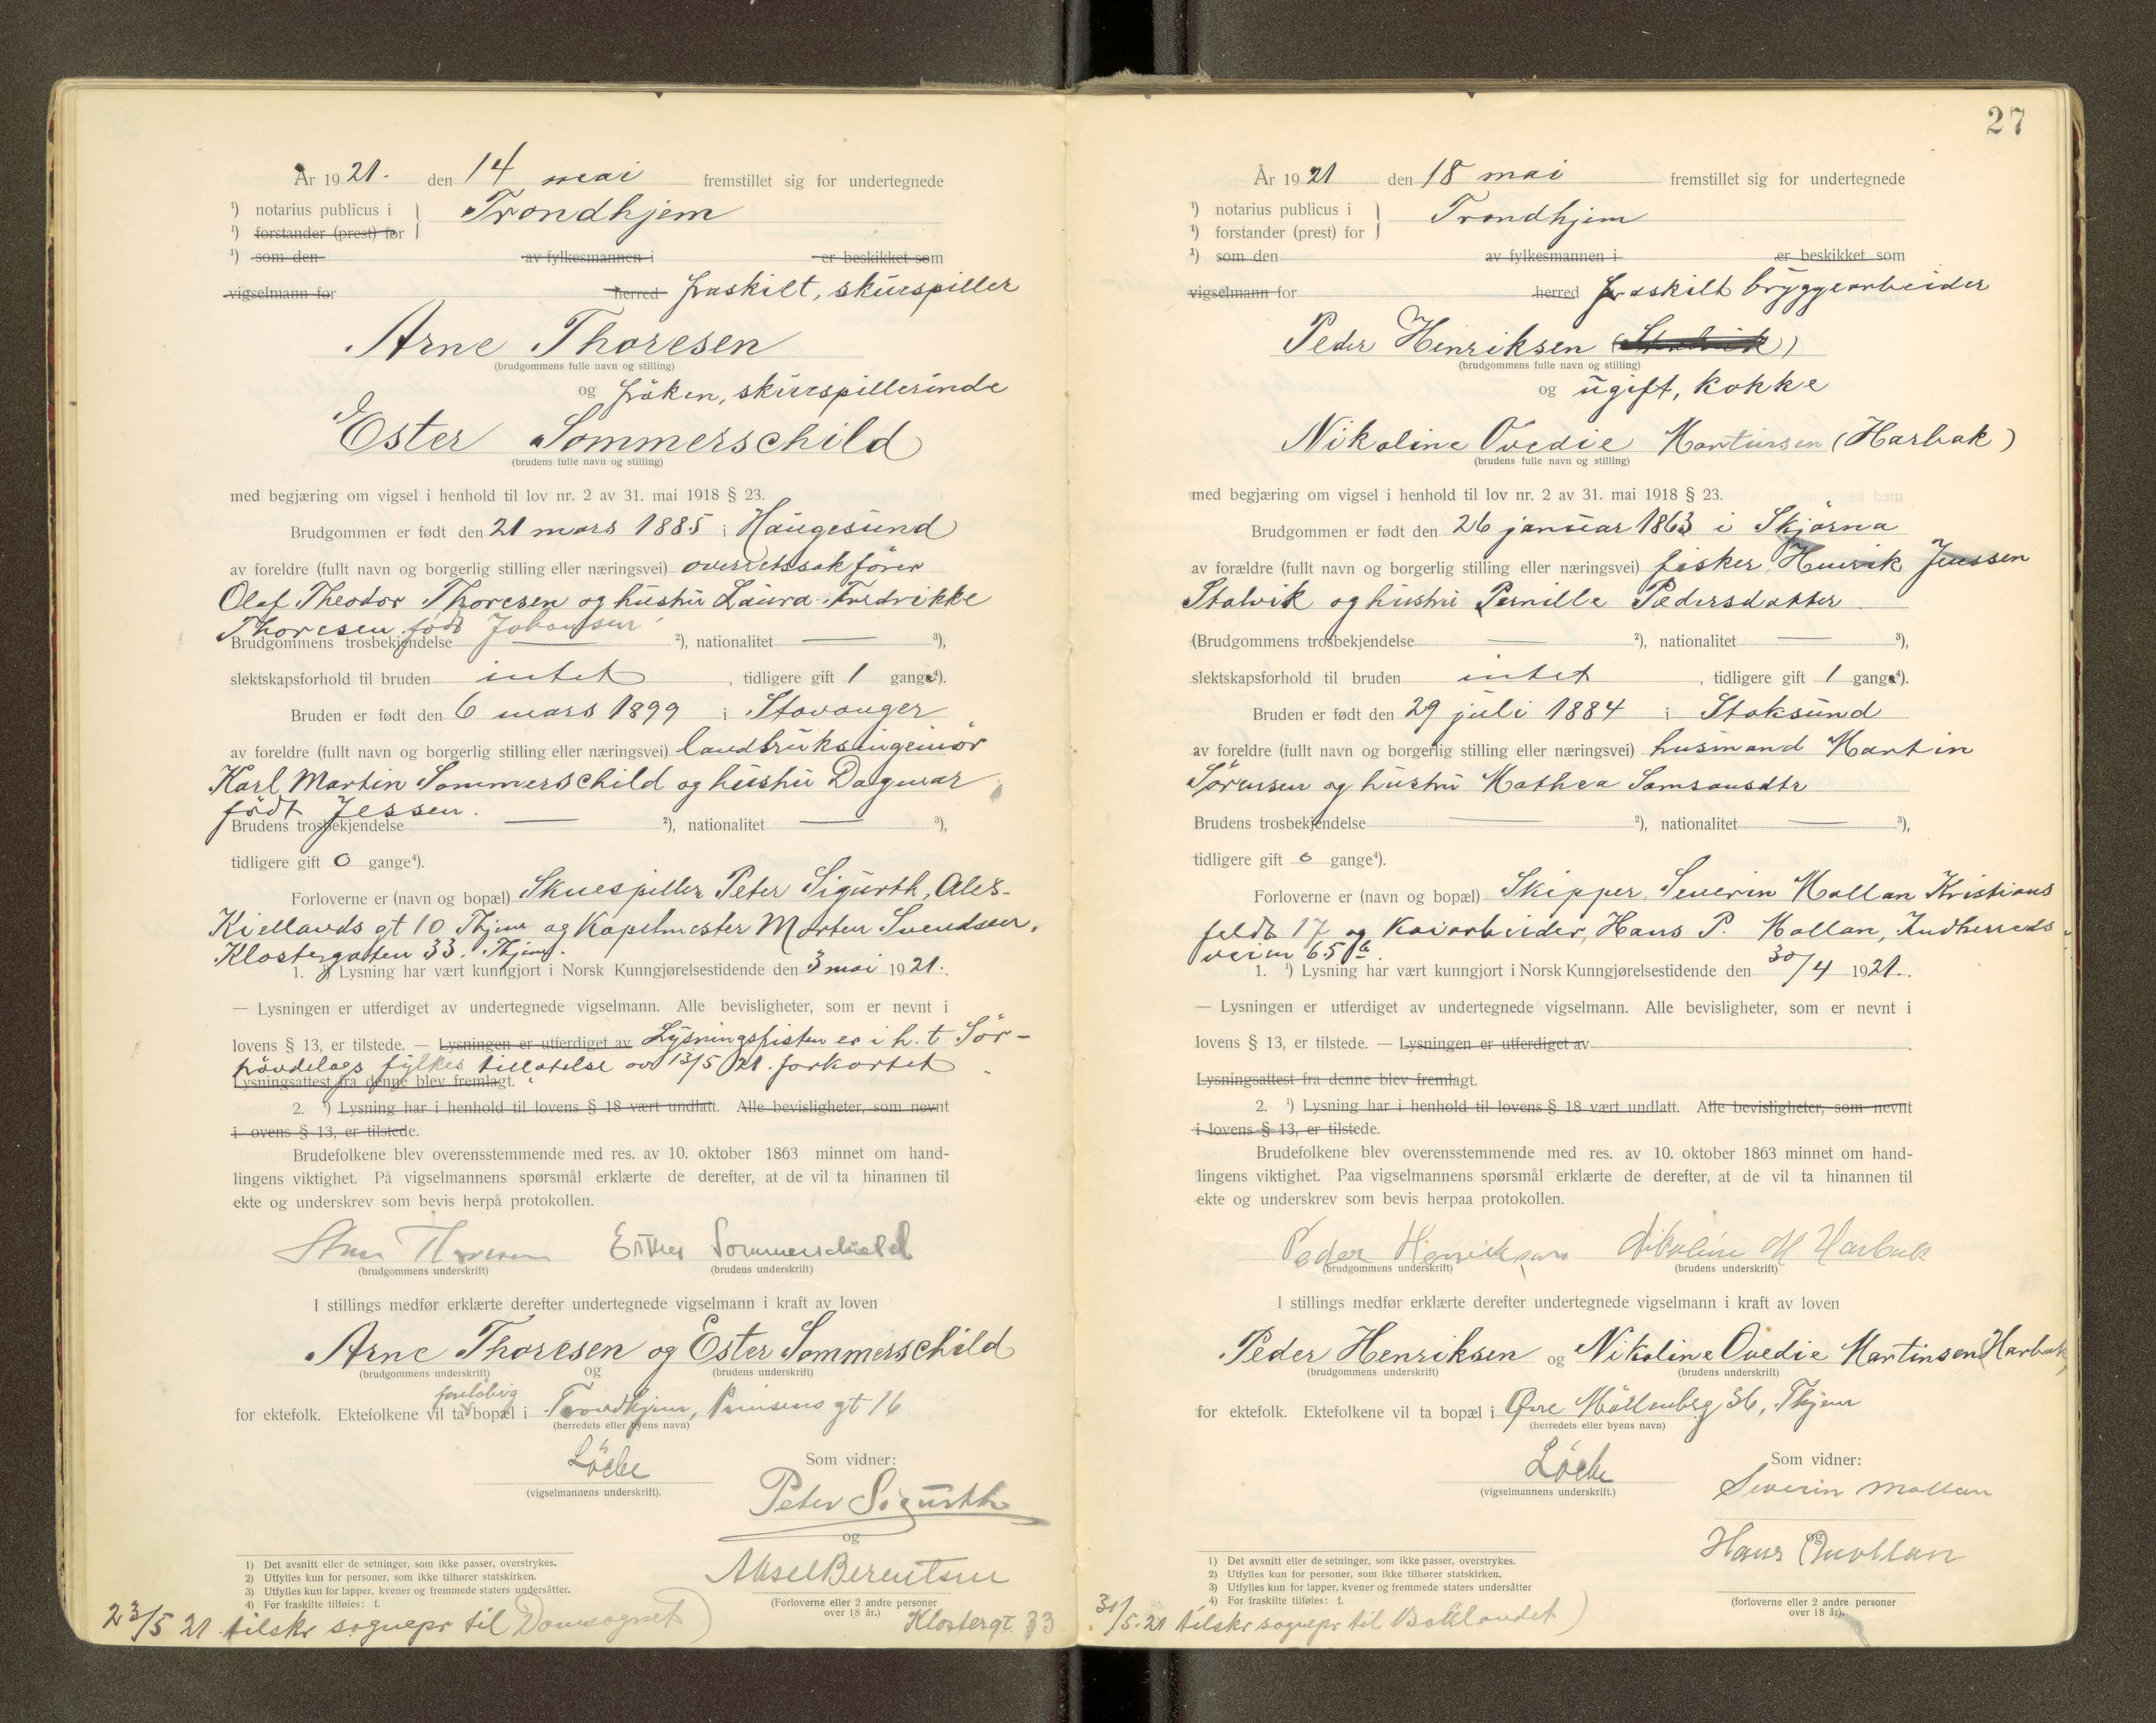 År 1921. den 14 mai fremstillet sig for undertegnede
¹) notarius publicus i Trondhjem
¹) forstander (prest) for
¹) som den av fylkesmannen i er beskikket som
vigselmann for herred fraskilt, skuespiller
Arne Thoresen
(brudgommens fulle navn og stilling)
og frøken, skuespillerinde
Ester Sommerschild
(brudens fulle navn og stilling)
med begjæring om vigsel i henhold til lov nr. 2 av 31. mai 1918 § 23.
Brudgommen er født den 21 mars 1885 i Haugesund
av foreldre (fullt navn og borgerlig stilling eller næringsvei) overretssakfører
Olaf Theodor Thoresen og hustru Laura Fredrikke
Thoresen født Johansen
Brudgommens trosbekjendelse — ²), nationalitet — ³),
slektskapsforhold til bruden intet, tidligere gift 1 gange⁴).
Bruden er født den 6 mars 1899 i Stavanger
av foreldre (fullt navn og borgerlig stilling eller næringsvei) landbruksingeniør
Karl Martin Sommerschild og hustru Dagmar
født Jessen.
Brudens trosbekjendelse — ²), nationalitet — ³),
tidligere gift 0 gange⁴).
Forloverne er (navn og bopæl) Skuespiller Peter Sigurth, Alex-
Kiellands gt 10 Thjem og Kapelmester Morten Svendsen,
Klostergaten 33. Thjem.
1. ¹) Lysning har vært kunngjort i Norsk Kunngjørelsestidende den 3 mai 1921.
— Lysningen er utferdiget av undertegnede vigselmann. Alle bevisligheter, som er nevnt i
lovens § 13, er tilstede. — Lysningen er utferdiget av Lysningsfristen er i h. t Sør-
trøndelags fylkes tillatelse av 13/5 21. forkortet
Lysningsattest fra denne blev fremlagt.
2. ¹) Lysning har i henhold til lovens § 18 vært undlatt. Alle bevisligheter, som nevnt
i ovens § 13, er tilstede.
Brudefolkene blev overensstemmende med res. av 10. oktober 1863 minnet om hand-
lingens viktighet. På vigselmannens spørsmål erklærte de derefter, at de vil ta hinannen til
ekte og underskrev som bevis herpå protokollen.
Arne Thoresen Esther Sommerschield
(brudgommens underskrift) (brudens underskrift)
I stillings medfør erklærte derefter undertegnede vigselmann i kraft av loven
Arne Thoresen og Ester Sommerschild
(brudgommens underskrift) og (brudens underskrift)
foreløbig
for ektefolk. Ektefolkene vil ta bopæl i Trondhjem, Prinsens gt 16
(herredets eller byens navn)
Löcke Som vidner:
(vigselmannens underskrift).
Peter Sigurth
og
Aksel Berentsen
(Forloverne eller 2 andre personer
over 18 år.) Klostergt 33
1) Det avsnitt eller de setninger, som ikke passer, overstrykes.
2) Utfylles kun for personer, som ikke tilhører statskirken.
3) Utfylles kun for lapper, kvener og fremmede staters undersåtter.
4) For fraskilte tilføies: f.
23/5 21 tilskr sognepr til Domsognet)
27
År 1921 den 18 mai fremstillet sig for undertegnede
¹) notarius publicus i Trondhjem
¹) forstander (prest) for
¹) som den av fylkesmannen i er beskikket som
vigselmann for herred fraskilt bryggearbeider
Peder Henriksen (Stalvik)
(brudgommens fulle navn og stilling)
og ugift, kokke
Nikoline Ovedie Martinsen (Harbak)
(brudens fulle navn og stilling)
med begjæring om vigsel i henhold til lov nr. 2 av 31. mai 1918 § 23.
Brudgommen er født den 26 januar 1863 i Skjørna
av forældre (fullt navn og borgerlig stilling eller næringsvei) fisker Henrik Jenssen
Stalvik og hustru Pernille Pedersdatter
(Brudgommens trosbekjendelse — ²), nationalitet — ³),
slektskapsforhold til bruden intet, tidligere gift 1 gange⁴).
Bruden er født den 29 juli 1884 i Stoksund
av foreldre (fullt navn og borgerlig stilling eller næringsvei) husmand Martin
Sørensen og hustru Mathea Samsonsdtr
Brudens trosbekjendelse — ²), nationalitet — ³),
tidligere gift 0 gange⁴).
Forloverne er (navn og bopæl) Skipper Severin Mollan Kristians
feldt 17 og Kaiarbeider, Hans P. Mollan, Indherreds
veien 65 b.
1. ¹) Lysning har vært kunngjort i Norsk Kunngjørelsestidende den 30/4 1921.
— Lysningen er utferdiget av undertegnede vigselmann. Alle bevisligheter, som er nevnt i
lovens § 13, er tilstede. — Lysningen er utferdiget av
Lysningsattest fra denne blev fremlagt.
2. ¹) Lysning har i henhold til lovens § 18 vært undlatt. Alle bevisligheter, som nevnt
i lovens § 13, er tilstede.
Brudefolkene blev overensstemmende med res. av 10. oktober 1863 minnet om hand-
lingens viktighet. Paa vigselmannens spørsmål erklærte de derefter, at de vil ta hinannen til
ekte og underskrev som bevis herpaa protokollen.
Peder Henriksen Nikoline M Harbak
(brudgommens underskrift) (brudens underskrift)
I stillings medfør erklærte derefter undertegnede vigselmann i kraft av loven
Peder Henriksen og Nikoline Ovedie Martinsen (Harbak)
(brudgommens underskrift) (brudens underskrift)
for ektefolk. Ektefolkene vil ta bopæl i Øvre Møllenberg 36, Thjem
(herredets eller byens navn)
Löcke Som vidner:
(vigselmannens underskrift.)
Severin Mollan
og
Hans P Mollan
(forloverne eller 2 andre personer
over 18 år).
1) Det avsnitt eller de setninger, som ikke passer, overstrykes.
2) Utfylles kun for personer, som ikke tilhører statskirken.
3) Utfylles kun for lapper, kvener og fremmede staters undersåtter
4) For fraskilte tilføies: f.
31/5.21 tilskr sognepr til Baklandet)